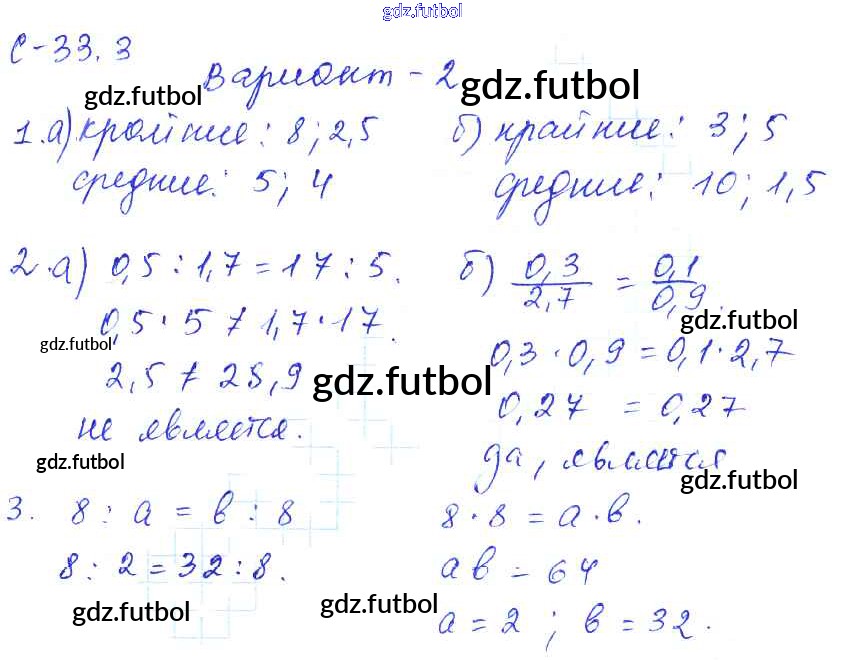 gdz.futbol
С-33.3
Вариант - 2
gdz.futbol
gdz.futbol
1. а) крайние: 8; 2,5
средние: 5; 4
б) крайние: 3; 5
средние: 10; 1,5
2. а) 0,5 : 1,7 = 17 : 5.
0,5 · 5 ≠ 1,7 · 17.
gdz.futbol
2,5 ≠ 28,9
gdz.futbol
не является.
gdz.futbol
б) 0,3/2,7 = 0,1/0,9.
gdz.futbol
0,3 · 0,9 = 0,1 · 2,7
0,27 = 0,27
да, является
gdz.futbol
3. 8 : а = в : 8
8 : 2 = 32 : 8.
gdz.futbol
8 · 8 = а · в.
ав = 64
gdz.futbol
а = 2 ; в = 32.